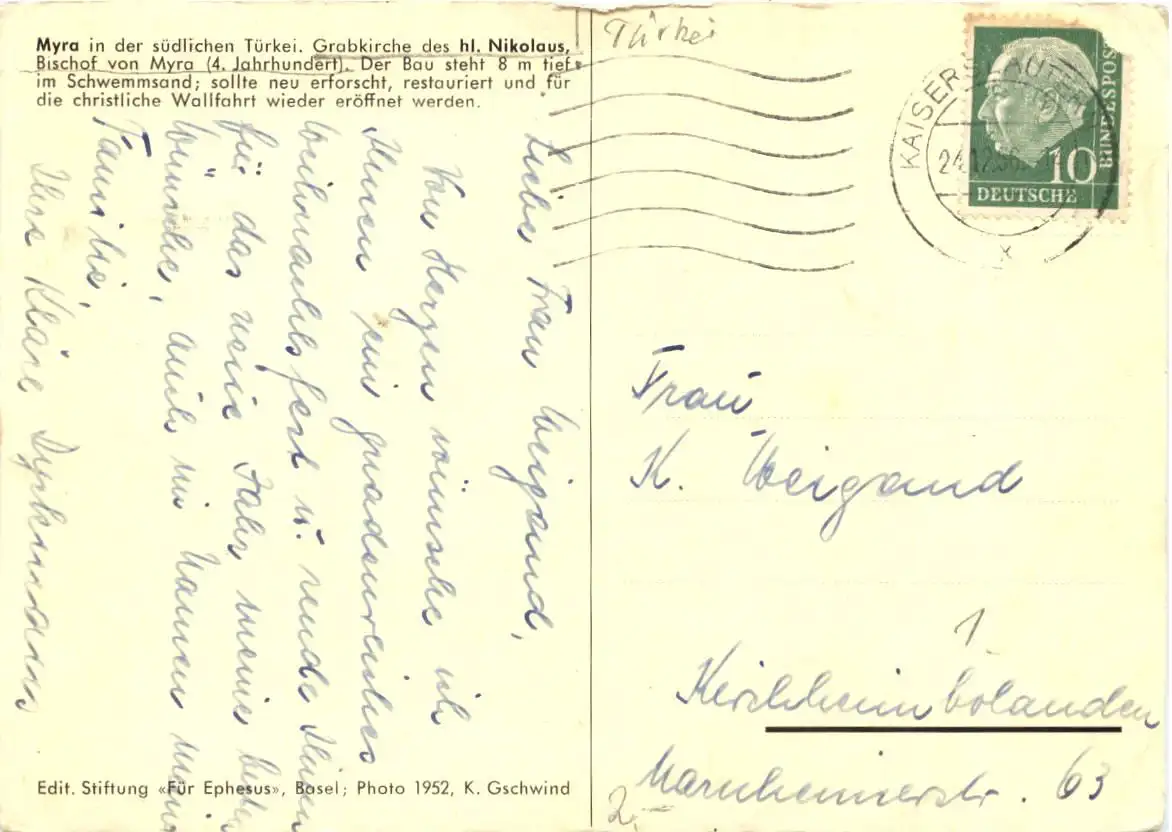 Myra in der südlichen Türkei. Grabkirche des hl. Nikolaus,
Bischof von Myra (4. Jahrhundert). Der Bau steht 8 m tief
im Schwemmsand; sollte neu erforscht, restauriert und für
die christliche Wallfahrt wieder eröffnet werden.
Liebe Frau Weigand,
Von Herzen wünsche ich
Ihnen ein gnadenreiches
Weihnachtsfest u. sende Ihnen
für das neue Jahr meine besten
Wünsche, auch im Namen meiner
Familie,
Ihre Kläre
Edit. Stiftung «Für Ephesus», Basel; Photo 1952, K. Gschwind
Türkei
KAISERSLAUTERN
24.12.56
10
DEUTSCHE
BUNDESPOST
Frau
K. Weigand
1
Kirchheimbolanden
Marnheimerstr. 63
2,-